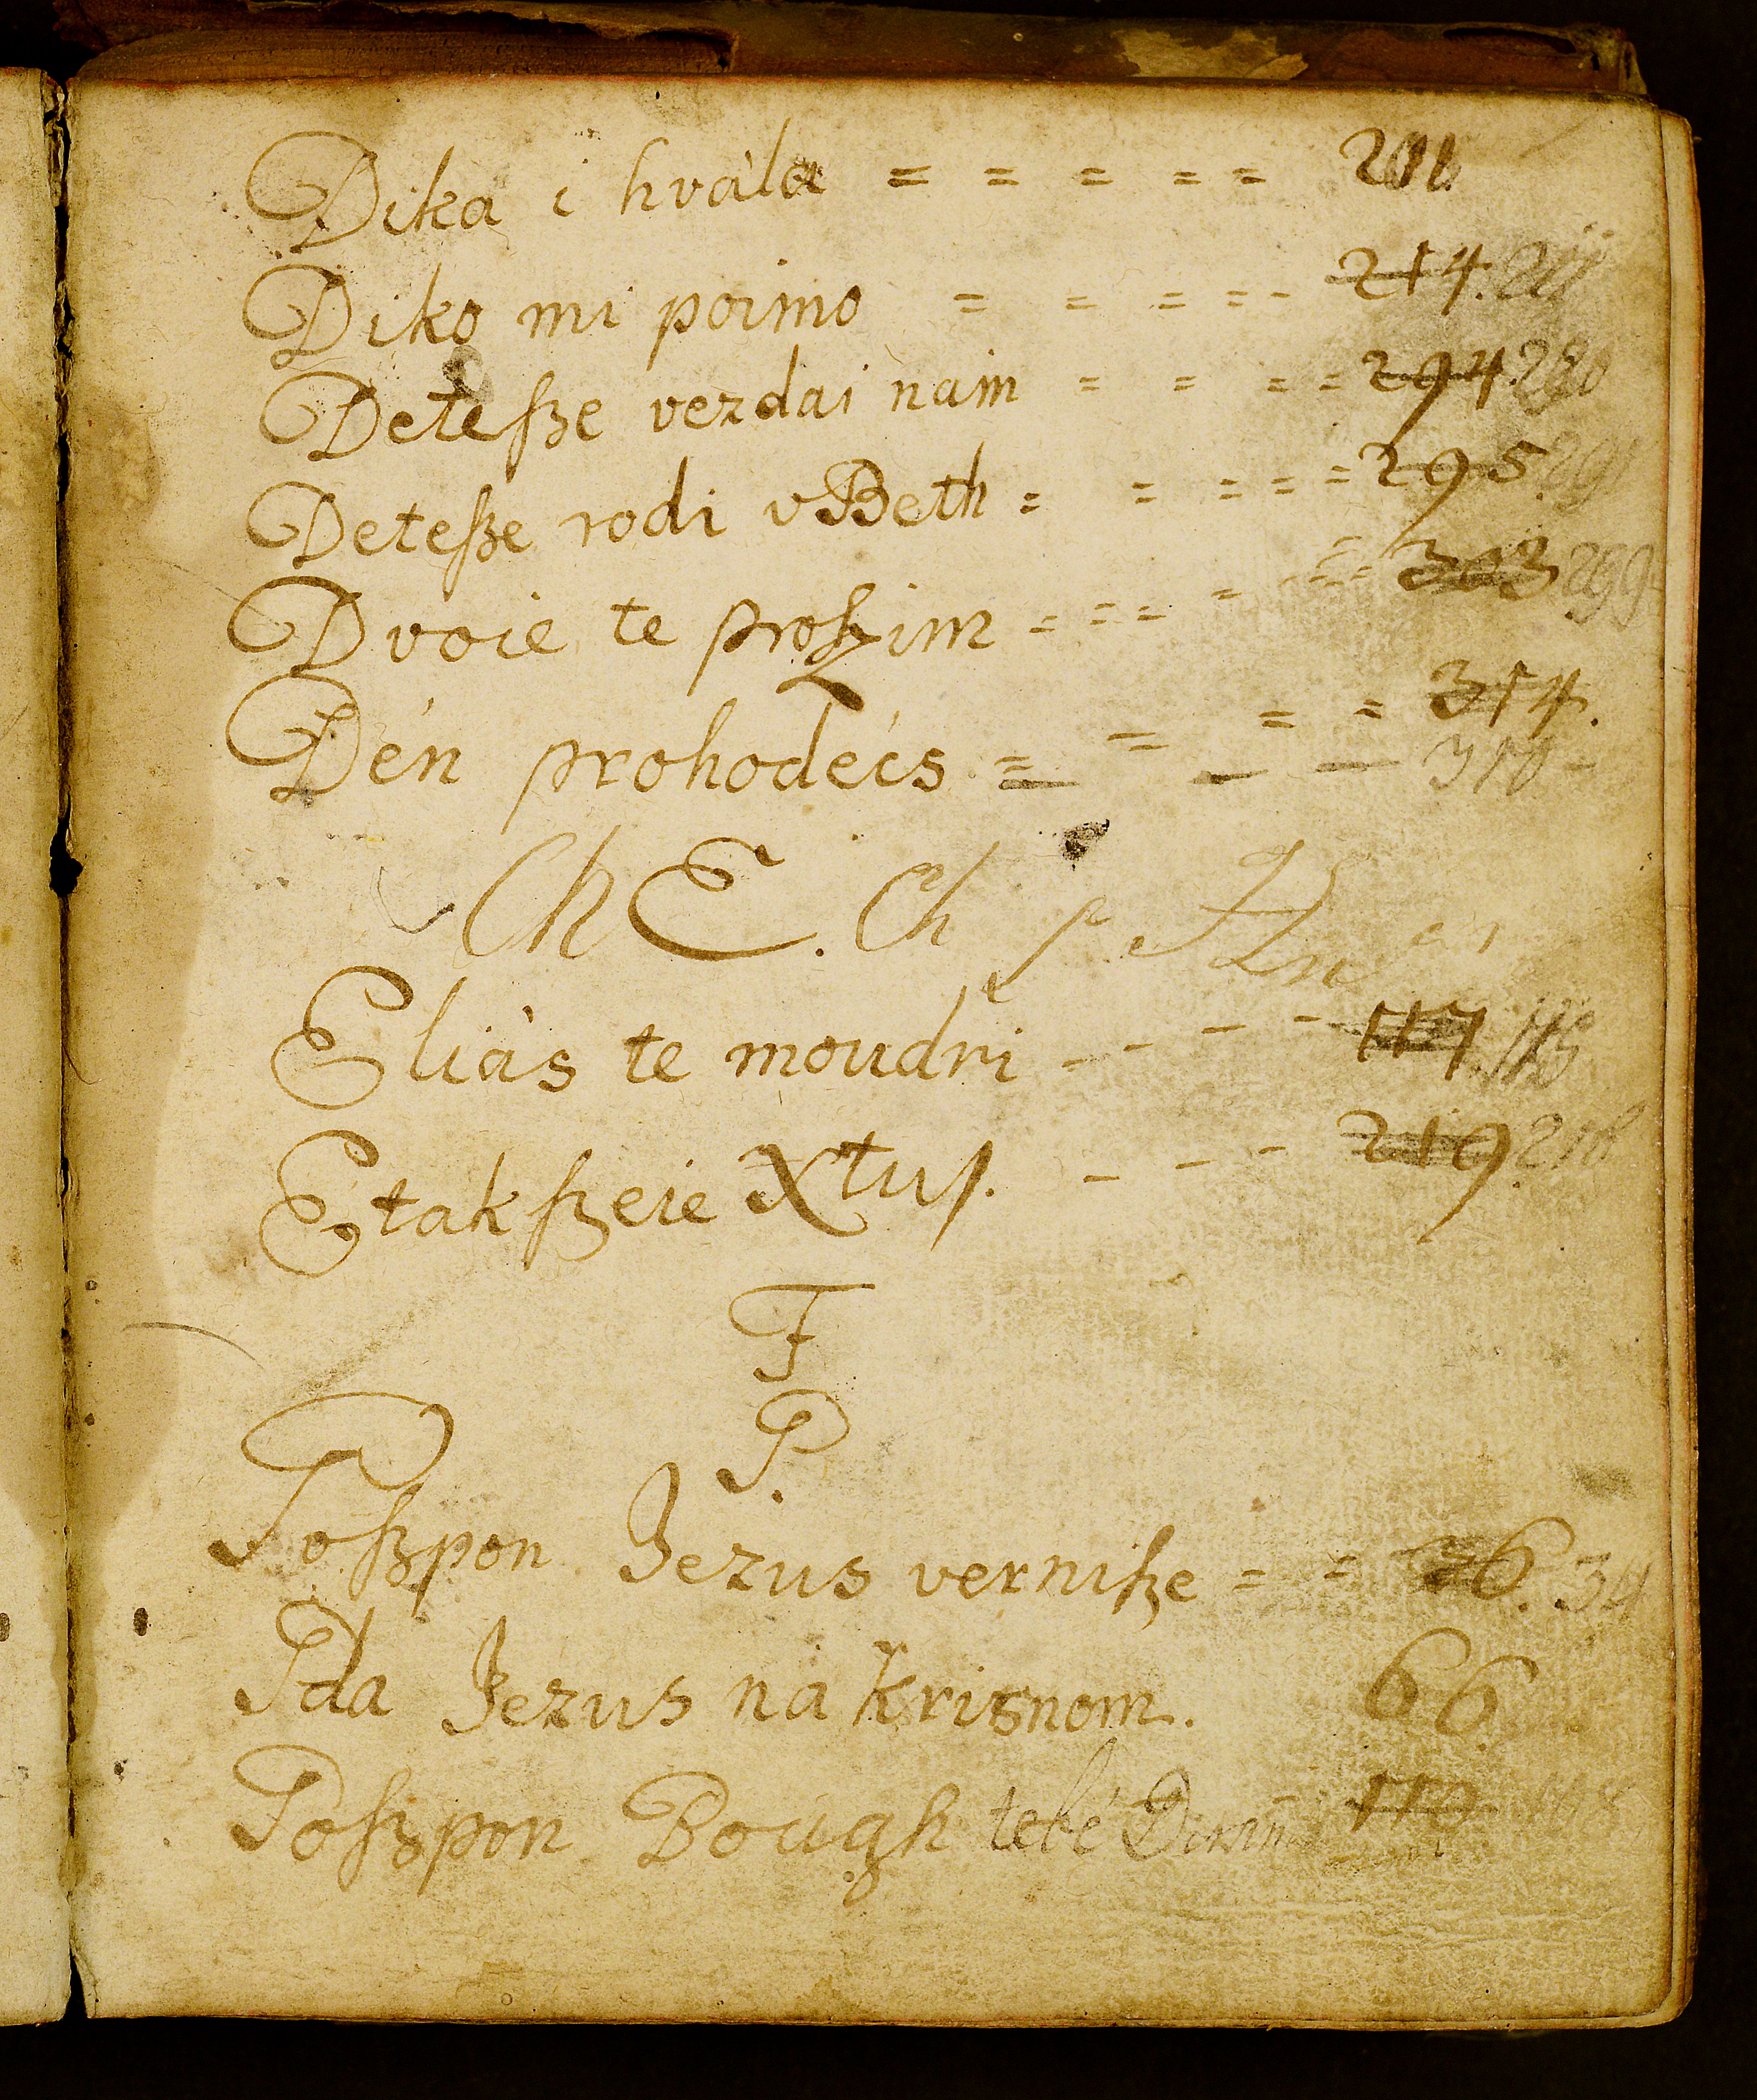 Dika i hvàla = = = = = 211
Diko mi poimo = = = = - 214. 211
Deteſze vezdai nam = = = = 294. 290
Deteſze rodi v Beth = = = = = 295. 291
Dvoie te proſzim = = = = = = 303 299
Dén prohodécs = = = = 314.
— — 310 -
Ch E. Ch
Eliàs te moudri - - - - 117. 113
Etak ſzeie Xtuſ. - - - 219. 218
F
P.
Poſzpon Jezus verniſze = = 36. 34
Ida Jezus na krisnom. 66
Poſzpon Bough tebé 110